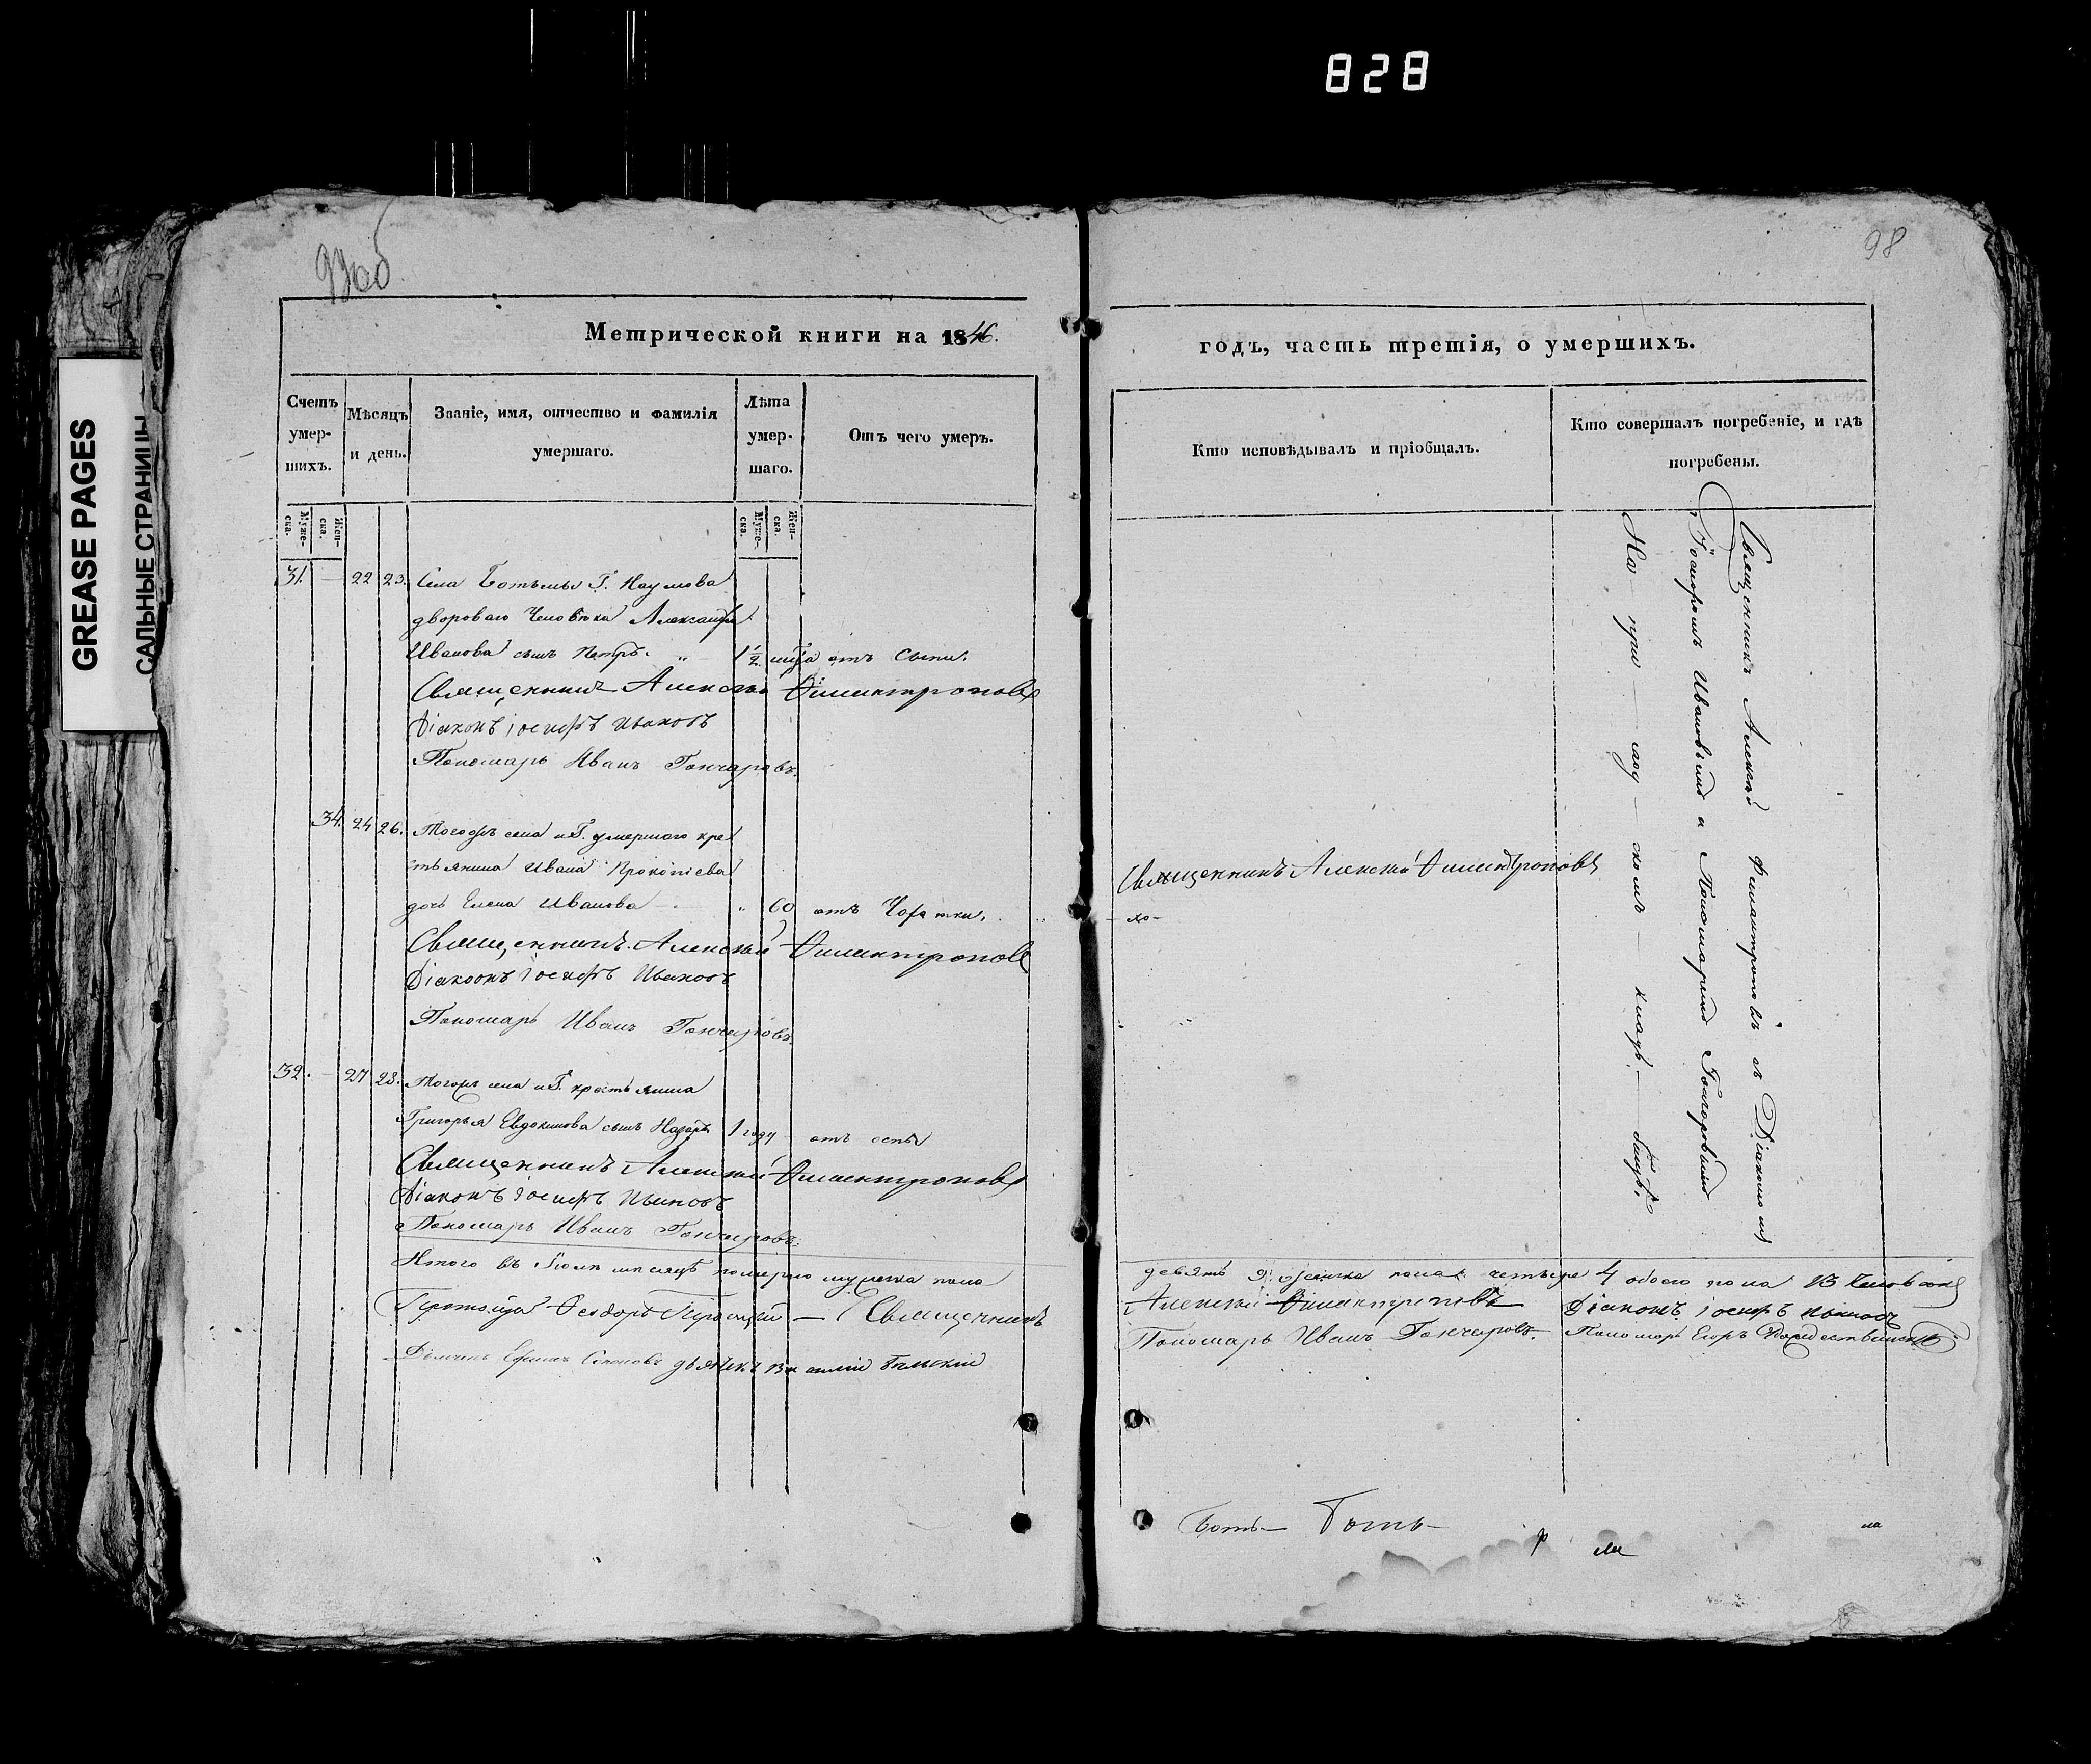 828
GREASE PAGES
САЛЬНЫЕ СТРАНИЦЫ
97об
98
Метрической книги на 1846.
годъ, часть третія, о умершихъ.
Счетъ умер-шихъ.
Мѣсяцъ и день.
Званіе, имя, отчество и фамилія умершаго.
Лѣта умер-шаго.
Отъ чего умеръ.
Кто исповѣдывалъ и пріобщалъ.
Кто совершалъ погребеніе, и гдѣ погребены.
Муже-ска.
Жен-ска.
Муже-ска.
Жен-ска.
31. — 22 23. Села Ботьмы Г. Наумова
двороваго человѣка Александра
Иванова сынъ Петръ. „ 1 1/2 отъ Сыпи.
Священникъ Алексѣй Филантроповъ
Діаконъ Іосифъ Ивановъ
Пономарь Иванъ Гончаровъ.
34. 24 26. Тогожъ села и Г. умершаго кре
стьянина Ивана Прокопіева
дочь Елена Иванова — „ 60 отъ Чахотки.
Священникъ Алексѣй Филантроповъ
Діаконъ Іосифъ Ивановъ
Пономарь Иванъ Гончаровъ.
32. — 27 28. Тогожъ села и Г. крестьянина
Григорья Евдокимова сынъ Назаръ 1 году отъ оспы
Священникъ Алексѣй Филантроповъ
Діаконъ Іосифъ Ивановъ
Пономарь Иванъ Гончаровъ.
Итого въ Іюлѣ мѣсяцѣ померло мужеска пола
Ѳеодоръ — Священникъ
Діаконъ Ефимъ дьячекъ Василій
Священникъ Алексѣй Филантроповъ
Священникъ Алексѣй Филантроповъ съ Діакономъ
Іосифомъ Ивановымъ и Пономаремъ Гончаровымъ
На при — ход — скомъ — кладъ — бищѣ.
девять 9. женска пола четыре 4 обоего пола 13 человѣкъ
Алексѣй Филантроповъ Діаконъ Іосифъ Ивановъ
Пономарь Иванъ Гончаровъ. Пономарь Егоръ Рождественскій
Боть — Боть —
р ли
ла